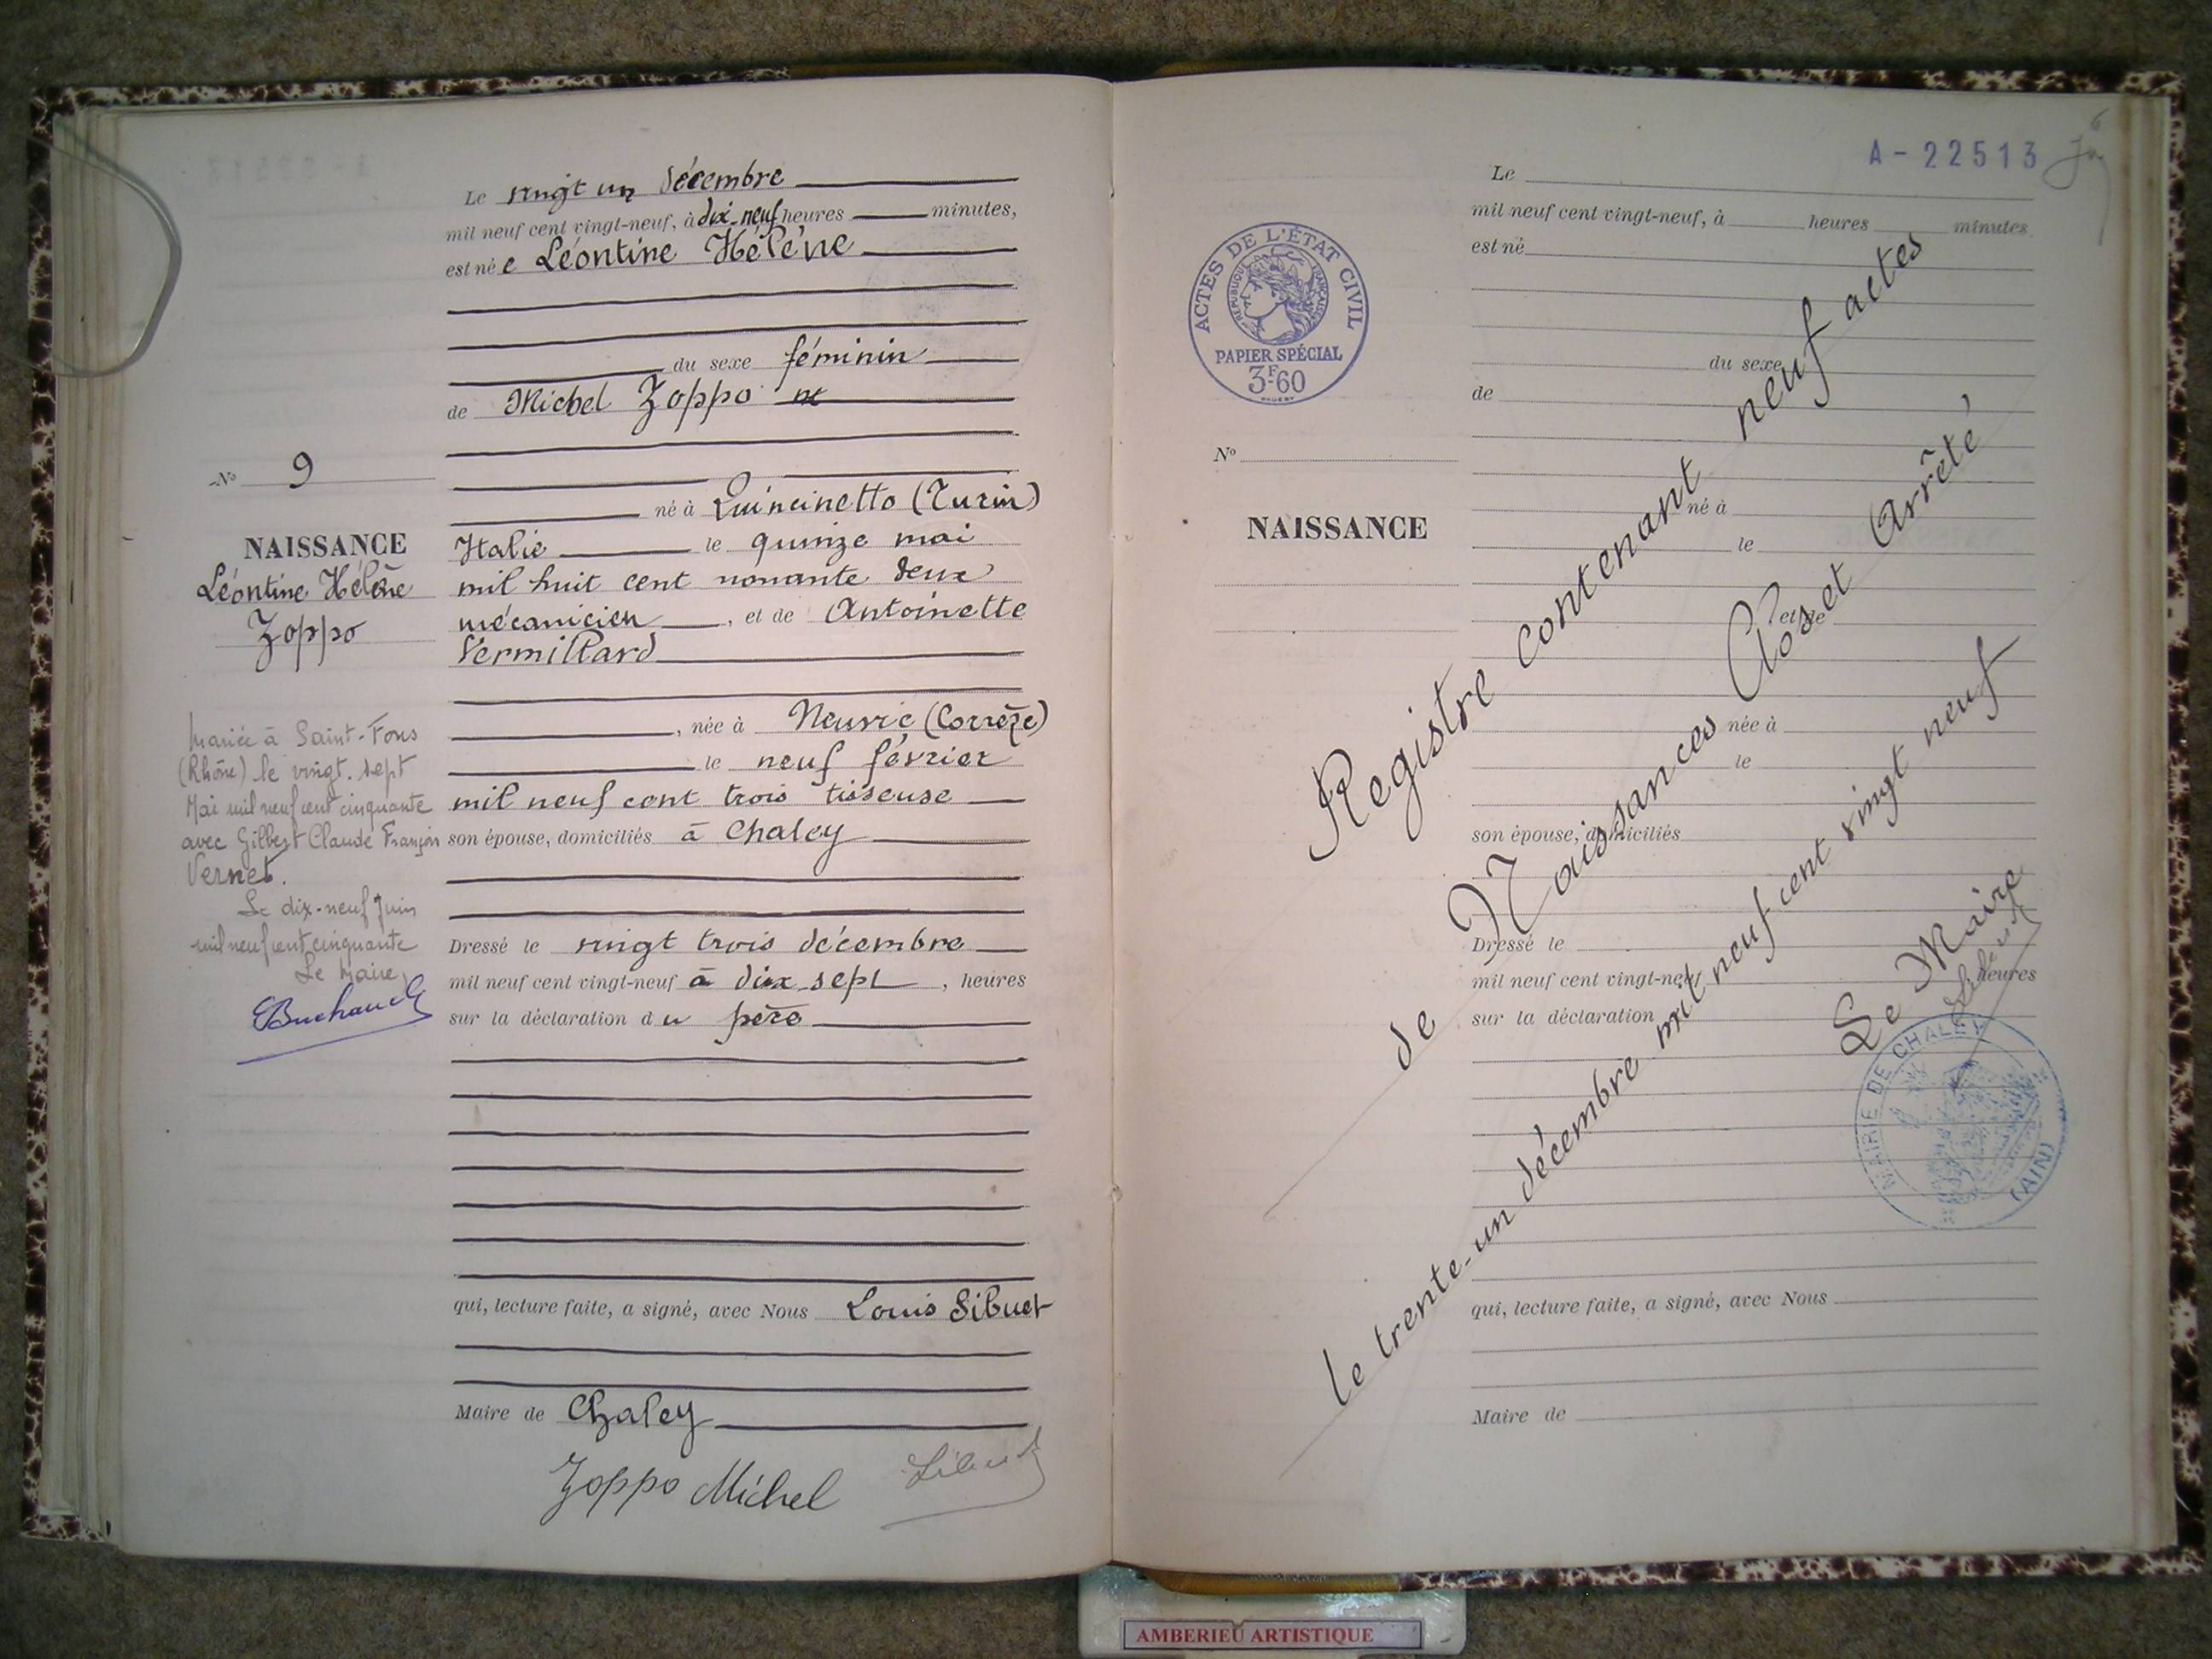 Le vingt un décembre
mil neuf cent vingt-neuf, à dix-neuf heures minutes,
est né e Léontine Hélène
du sexe féminin
de Michel Zoppo
né à Quincinetto (Turin)
Italie le quinze mai
mil huit cent nonante deux
mécanicien, et de Antoinette
Vermillard
, née à Neuvic (Corrèze)
le neuf février
mil neuf cent trois tisseuse
son épouse, domiciliés à Chaley
Dressé le vingt trois décembre
mil neuf cent vingt-neuf à dix sept, heures
sur la déclaration du père
qui, lecture faite, a signé, avec Nous Louis Sibuet
Maire de Chaley
Zoppo Michel Sibuet
No 9
NAISSANCE
Léontine Hélène
Zoppo
Mariée à Saint-Fons
(Rhône) le vingt-sept
Mai mil neuf cent cinquante
avec Gilbert Claude François
Vernet.
Le dix-neuf Juin
mil neuf cent cinquante
Le Maire,
A-22513
ACTES DE L'ÉTAT CIVIL
RÉPUBLIQUE FRANÇAISE
PAPIER SPÉCIAL
3F-60
No
NAISSANCE
Le
mil neuf cent vingt-neuf, à heures minutes
est né
du sexe
de
né à
le
et de
née à
le
son épouse, domiciliés
Dressé le
mil neuf cent vingt-neuf heures
sur la déclaration
qui, lecture faite, a signé, avec Nous
Maire de
Registre contenant neuf actes
de Naissances Clos et Arrêté
le trente-un décembre mil neuf cent vingt neuf
Le Maire
Sibuet
MAIRIE DE CHALEY
(AIN)
AMBERIEU ARTISTIQUE